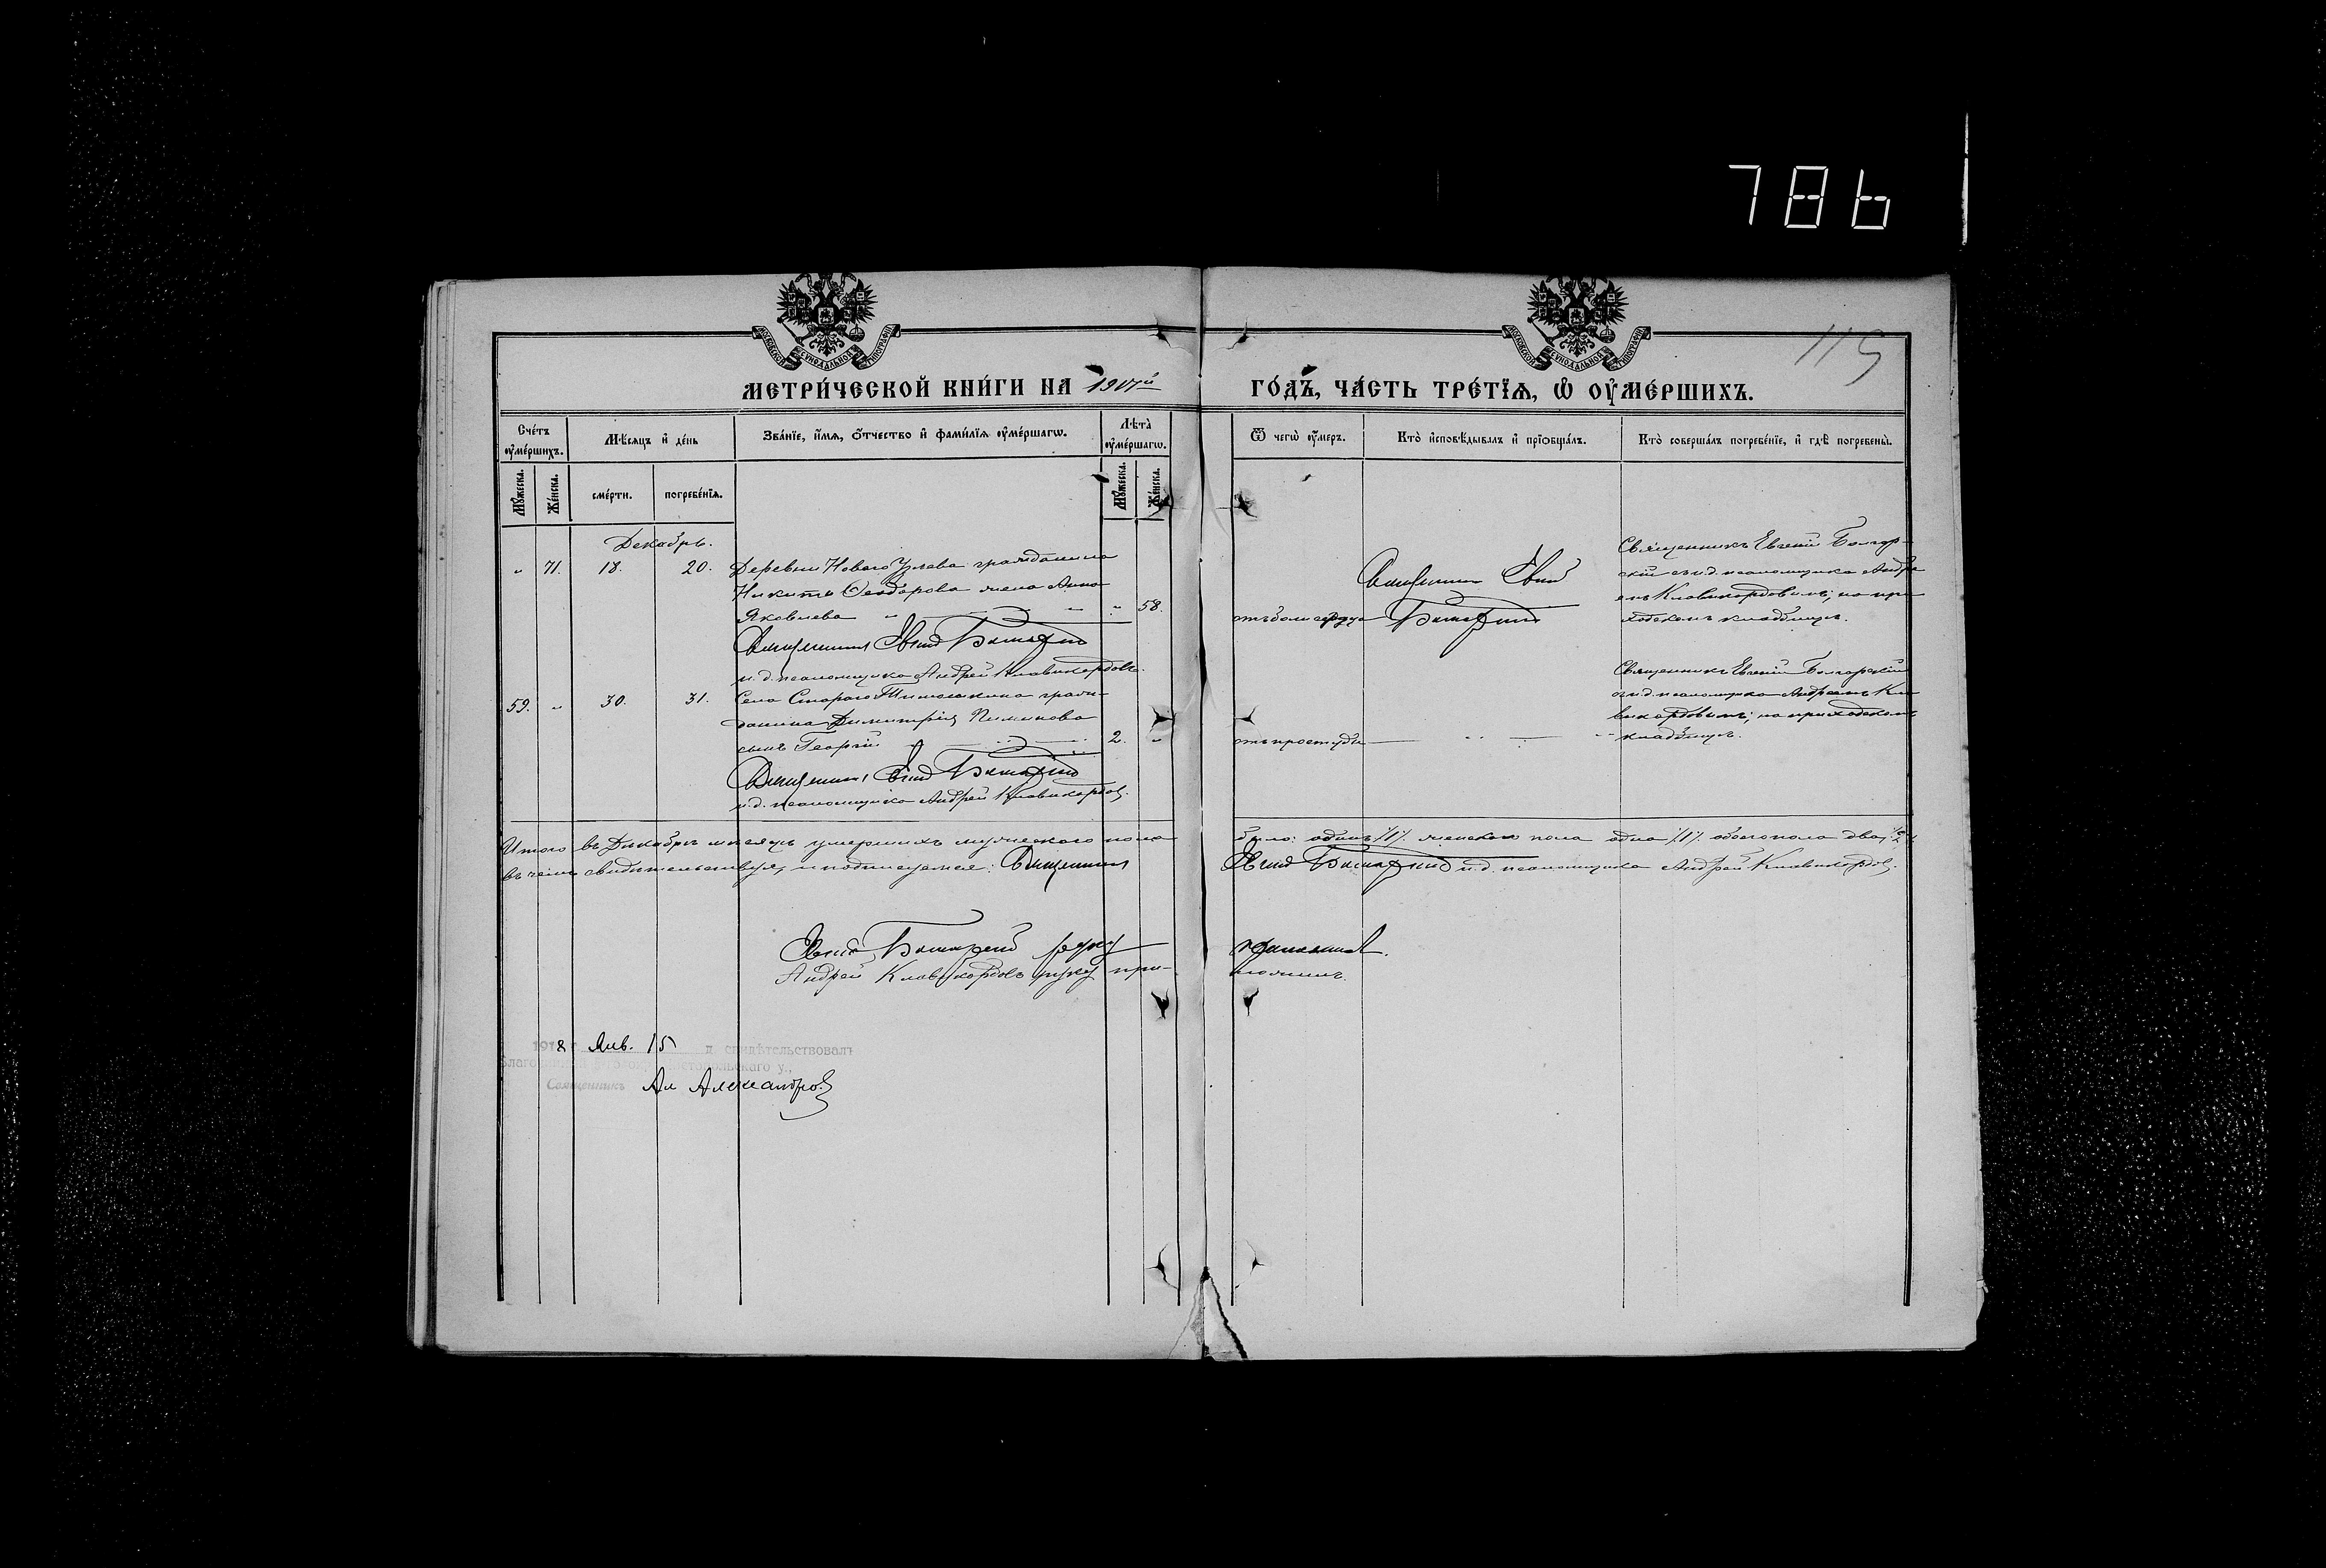 786
115
МОСКОВСКОЙ СУНОДАЛЬНОЙ ТИПОГРАФІИ
МОСКОВСКОЙ СУНОДАЛЬНОЙ ТИПОГРАФІИ
МЕТРИ́ЧЕСКОЙ КНИ́ГИ НА 1917й ГО́ДЪ, ЧА́СТЬ ТРЕ́ТЇѦ, Ѽ ОУ҆МЕ́РШИХЪ.
Сче́тъ оу҆ме́ршихъ.
Мѣ́сяцъ и҆ де́нь
Зва́нїе, и҆́мѧ, ѻ҆́тчество и҆ фами́лїѧ оу҆ме́ршагѡ.
Лѣ̀та̀ оу҆ме́ршагѡ.
Ѿ чегѡ̀ оу҆́меръ.
Кто̀ и҆сповѣ́дывалъ и҆ прїѡбща́лъ.
Кто̀ соверша́лъ погребе́нїе, и҆ гдѣ̀ погребены̀.
Мꙋ́жеска.
Же́нска.
сме́рти.
погребе́нїѧ.
Мꙋ́жеска.
Же́нска.
Декабрь.
„ 71. 18. 20. Деревни Новаго Узлева гражданина
Никиты Ѳеодорова жена Анна
Яковлева „ 58.
отъ боли сердца
Священникъ Евгеній Болгарскій
Священникъ Евгеній Болгар-
скій съ и.д. псаломщика Андре
емъ Клавикордовымъ; на при
ходскомъ кладбищѣ.
Священникъ Евгеній Болгарскій
и.д. псаломщика Андрей Клавикордовъ.
59. „ 30. 31. Села Стараго Тимошкина граж-
данина Димитрія Пименова
сынъ Георгій 2. „
отъ простуды
Священникъ Евгеній Болгарскій
съ и.д. псаломщика Андреемъ Кла
викордовымъ; на приходскомъ
кладбищѣ.
Священникъ Евгеній Болгарскій
и.д. псаломщика Андрей Клавикордовъ.
Итого въ Декабрѣ мѣсяцѣ умершихъ мужескаго пола было: одинъ /1/. женскаго пола одна /1/. обоего пола два /2/
въ чемъ свидѣтельствуя, и подписуемся: Священникъ Евгеній Болгарскій и.д. псаломщика Андрей Клавикордовъ.
Евгеній Болгарскій руку приложилъ.
Андрей Клавикордовъ руку при-ложилъ.
1918 г. Янв. 15 д. свидѣтельствовалъ
у.,
Священникъ Ал Александровъ